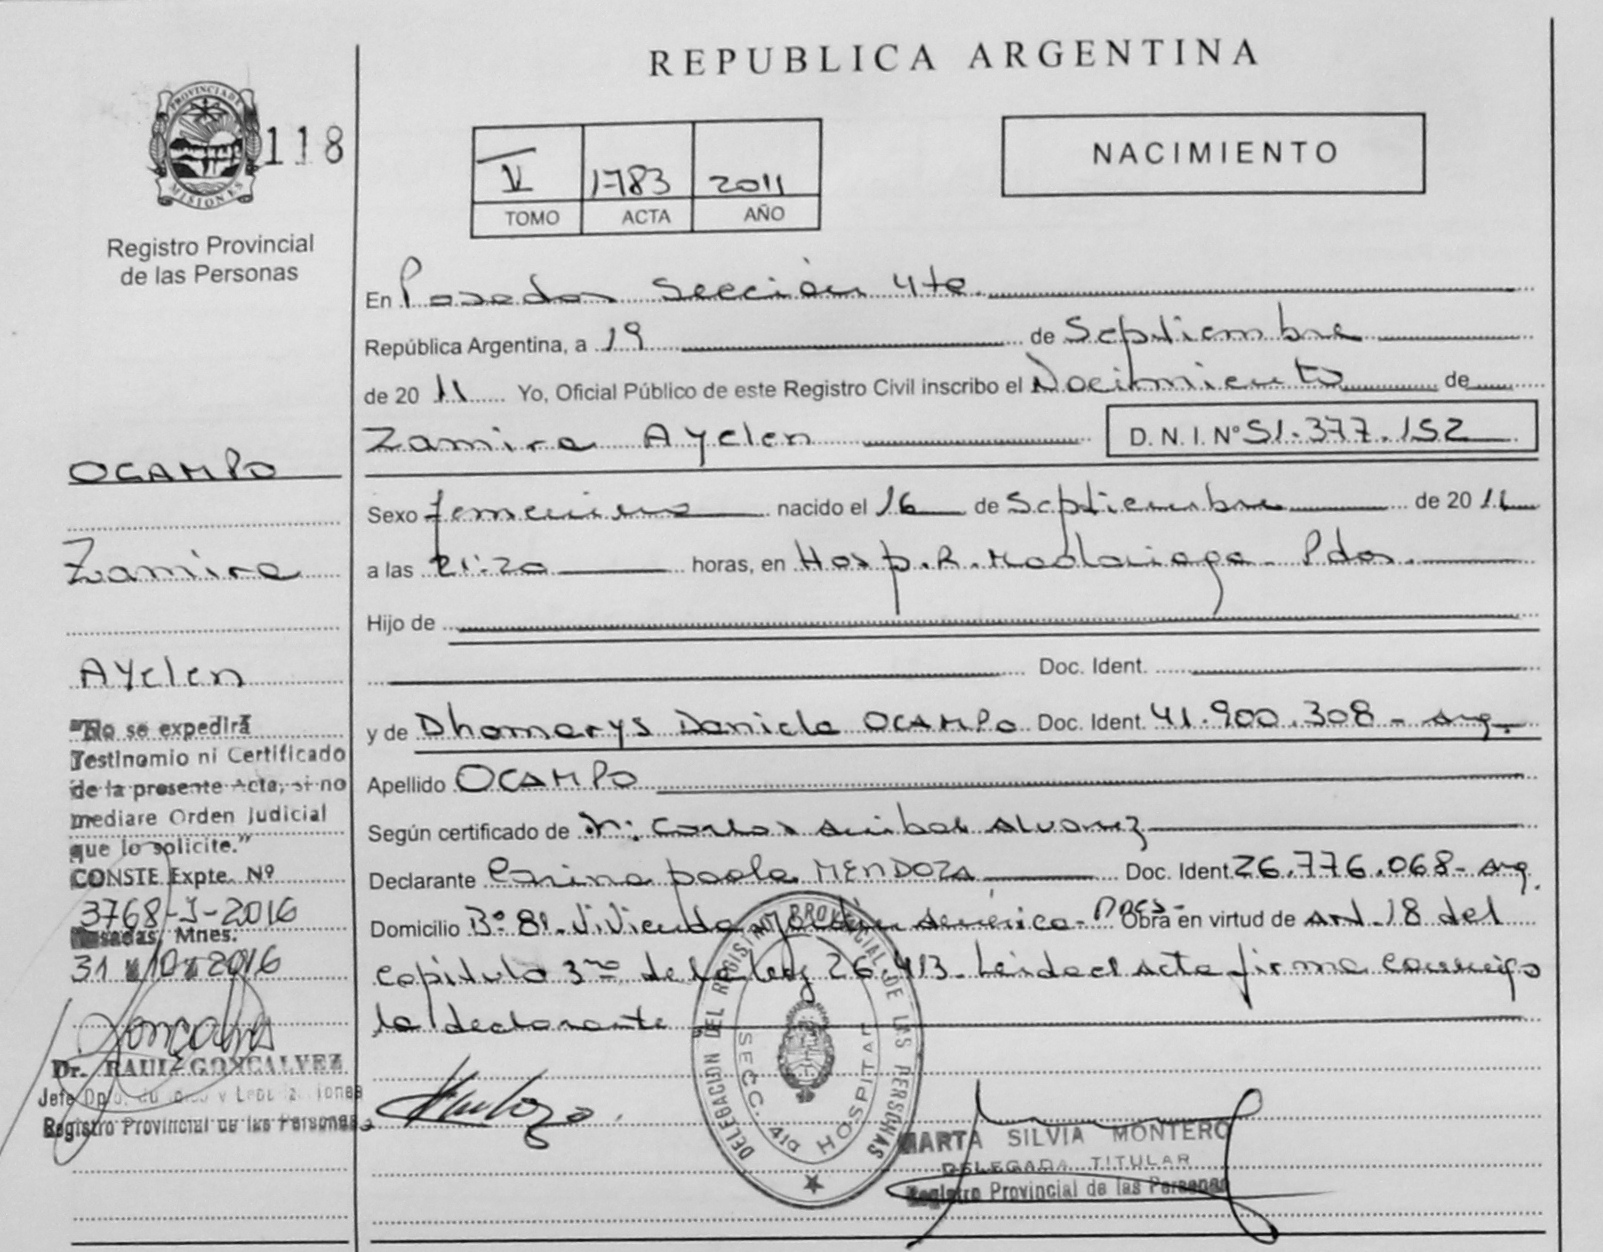 REPUBLICA ARGENTINA
PROVINCIA DE MISIONES
118
Registro Provincial
de las Personas
V 1783 2011
TOMO ACTA AÑO
NACIMIENTO
En Posadas Sección 4ta.
República Argentina, a 19 de Septiembre
de 20 11 Yo, Oficial Público de este Registro Civil inscribo el Nacimiento de
Zamira Ayelen D. N. I. N° 51.377.152
Sexo femenino nacido el 16 de Septiembre de 20 11
a las 21:20 horas, en Hosp. R. Madariaga - Pdas.
Hijo de
Doc. Ident.
y de Dhamarys Daniela OCAMPO Doc. Ident. 41.900.308 - Arg.
Apellido OCAMPO
Según certificado de Carlos Anibal Alvarez
Declarante Carina paola MENDOZA Doc. Ident. 26.776.068 - Arg.
Domicilio B° 81 - Vivienda América - Pdas - Obra en virtud de Art. 18 del
Capitulo 3ro de la Ley 26.413 - Leida el Acta firma conmigo
la declarante
OCAMPO
Zamira
Ayelen
"No se expedirá
Testimonio ni Certificado
de la presente Acta, si no
mediare Orden Judicial
que lo solicite."
CONSTE Expte. Nº
3768-J-2016
Posadas, Mnes.
31 10 2016
Dr. RAUL GONCALVEZ
Registro Provincial de las Personas
DELEGACION DEL REGISTRO PROVINCIAL DE LAS PERSONAS
SECC. 4ta HOSPITAL
MARTA SILVIA MONTERO
DELEGADA TITULAR
Registro Provincial de las Personas